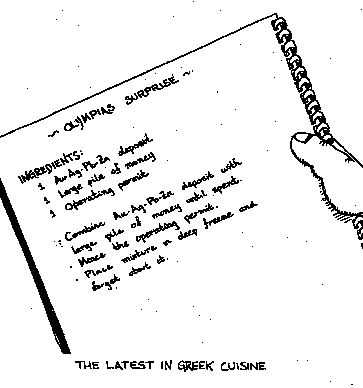 ~ OLYMPIAS SURPRISE ~
INGREDIENTS:
1 Au-Ag-Pb-Zn deposit
1 Large pile of money
1 Operating permit
: Combine Au-Ag-Pb-Zn deposit with
large pile of money until spent.
· Mince the operating permit.
· Place mixture in deep freeze and
forget about it.
THE LATEST IN GREEK CUISINE